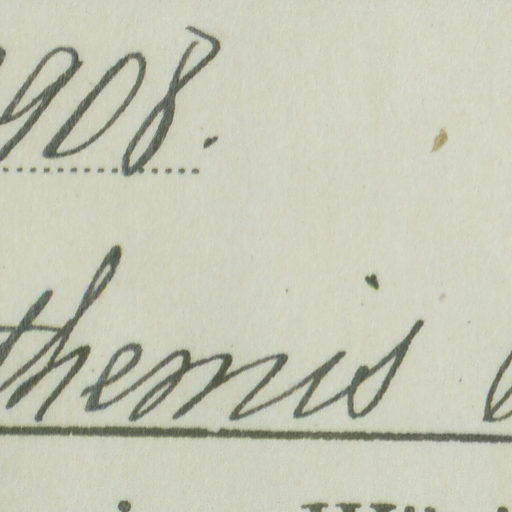 908.
themis